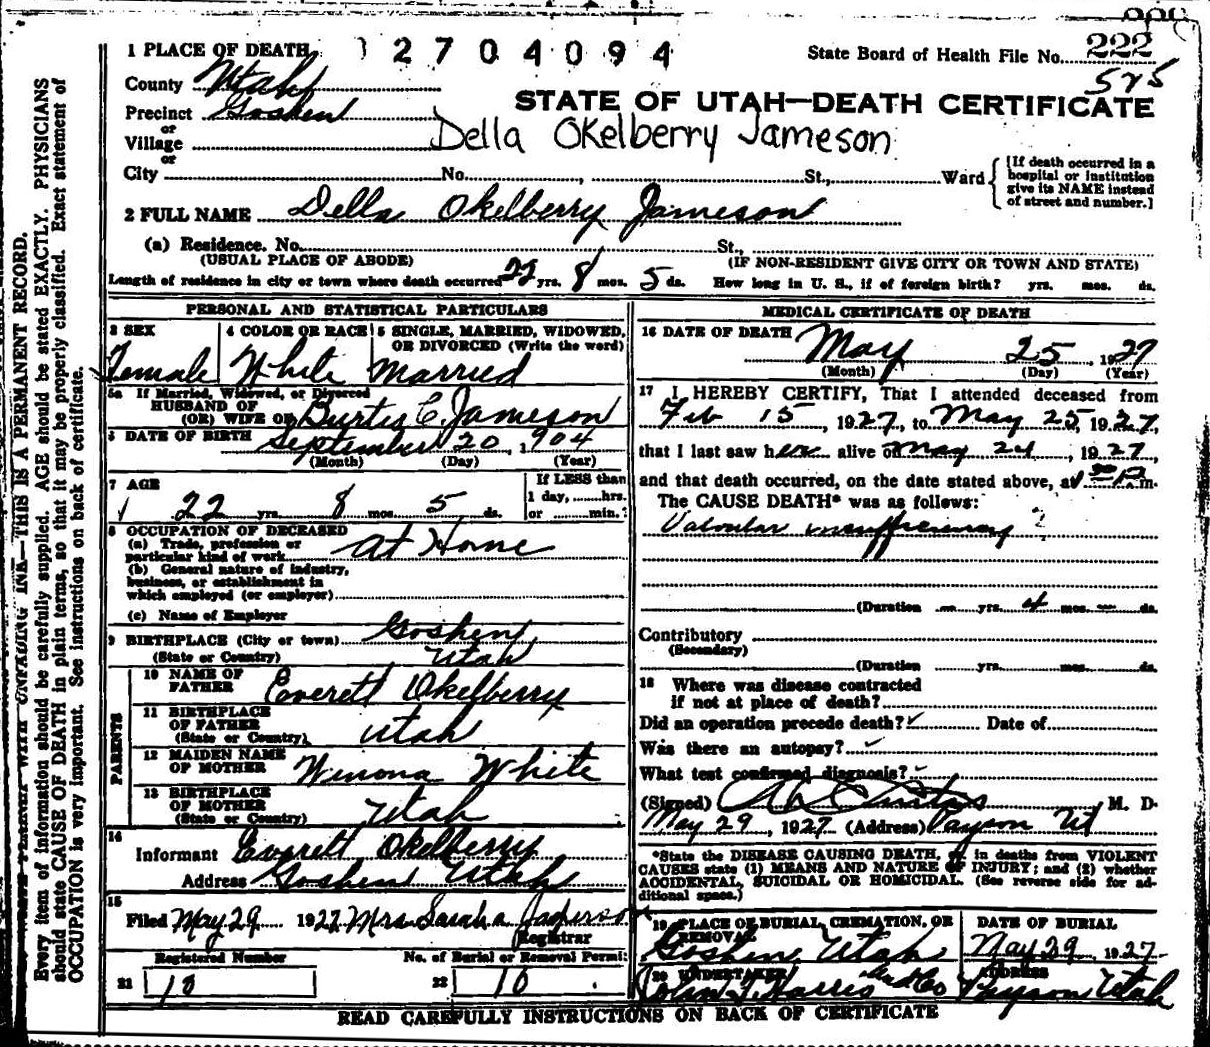 1 PLACE OF DEATH 12704094
State Board of Health File No. 222
575
County Utah
STATE OF UTAH—DEATH CERTIFICATE
Precinct Goshen
or
Village
Della Okelberry Jameson
or
City No. , St., Ward
[If death occurred in a
hospital or institution
give its NAME instead
of street and number.]
2 FULL NAME Della Okelberry Jameson
(a) Residence. No. St.,
(USUAL PLACE OF ABODE) (IF NON-RESIDENT GIVE CITY OR TOWN AND STATE)
Length of residence in city or town where death occurred 22 yrs. 8 mos. 5 ds. How long in U. S., if of foreign birth? yrs. mos. ds.
PERSONAL AND STATISTICAL PARTICULARS
3 SEX 4 COLOR OR RACE 5 SINGLE, MARRIED, WIDOWED,
OR DIVORCED (Write the word)
Female White Married
5a If Married, Widowed, or Divorced
HUSBAND OF
(OR) WIFE OF Burtis C. Jameson
6 DATE OF BIRTH September 20, 1904
(Month) (Day) (Year)
7 AGE If LESS than
1 day, hrs.
22 yrs. 8 mos. 5 ds. or min.?
8 OCCUPATION OF DECEASED
(a) Trade, profession or
particular kind of work At Home
(b) General nature of industry,
business, or establishment in
which employed (or employer)
(c) Name of Employer
9 BIRTHPLACE (City or town) Goshen
(State or Country) Utah
PARENTS
10 NAME OF
FATHER Everett Okelberry
11 BIRTHPLACE
OF FATHER
(State or Country) Utah
12 MAIDEN NAME
OF MOTHER Winona White
13 BIRTHPLACE
OF MOTHER
(State or Country) Utah
14
Informant Everett Okelberry
Address Goshen Utah
15
Filed May 29 1927 Mrs Sarah a
Registrar
Registered Number No. of Burial or Removal Permit
21 10 22 10
MEDICAL CERTIFICATE OF DEATH
16 DATE OF DEATH May 25, 1927
(Month) (Day) (Year)
17 I HEREBY CERTIFY, That I attended deceased from
Feb 15, 1927, to May 25, 1927,
that I last saw her alive on May 24, 1927,
and that death occurred, on the date stated above, at P.m.
The CAUSE DEATH* was as follows:
Valvular insufficiency ?
(Duration — yrs. 4 mos. — ds.
Contributory
(Secondary)
(Duration yrs. mos. ds.
18 Where was disease contracted
if not at place of death?
Did an operation precede death? ✓ Date of
Was there an autopsy? ✓
What test confirmed diagnosis? ✓
(Signed) M. D.
May 29, 1927 (Address) Payson Ut
*State the DISEASE CAUSING DEATH, or in deaths from VIOLENT
CAUSES state (1) MEANS AND NATURE OF INJURY; and (2) whether
ACCIDENTAL, SUICIDAL OR HOMICIDAL. (See reverse side for ad-
ditional space.)
19 PLACE OF BURIAL, CREMATION, OR
REMOVAL
DATE OF BURIAL
Goshen Utah May 29, 1927
20 UNDERTAKER ADDRESS
Harris Payson Utah
READ CAREFULLY INSTRUCTIONS ON BACK OF CERTIFICATE
WITH UNFADING INK—THIS IS A PERMANENT RECORD.
Every item of information should be carefully supplied. AGE should be stated EXACTLY. PHYSICIANS
should state CAUSE OF DEATH in plain terms, so that it may be properly classified. Exact statement of
OCCUPATION is very important. See instructions on back of certificate.